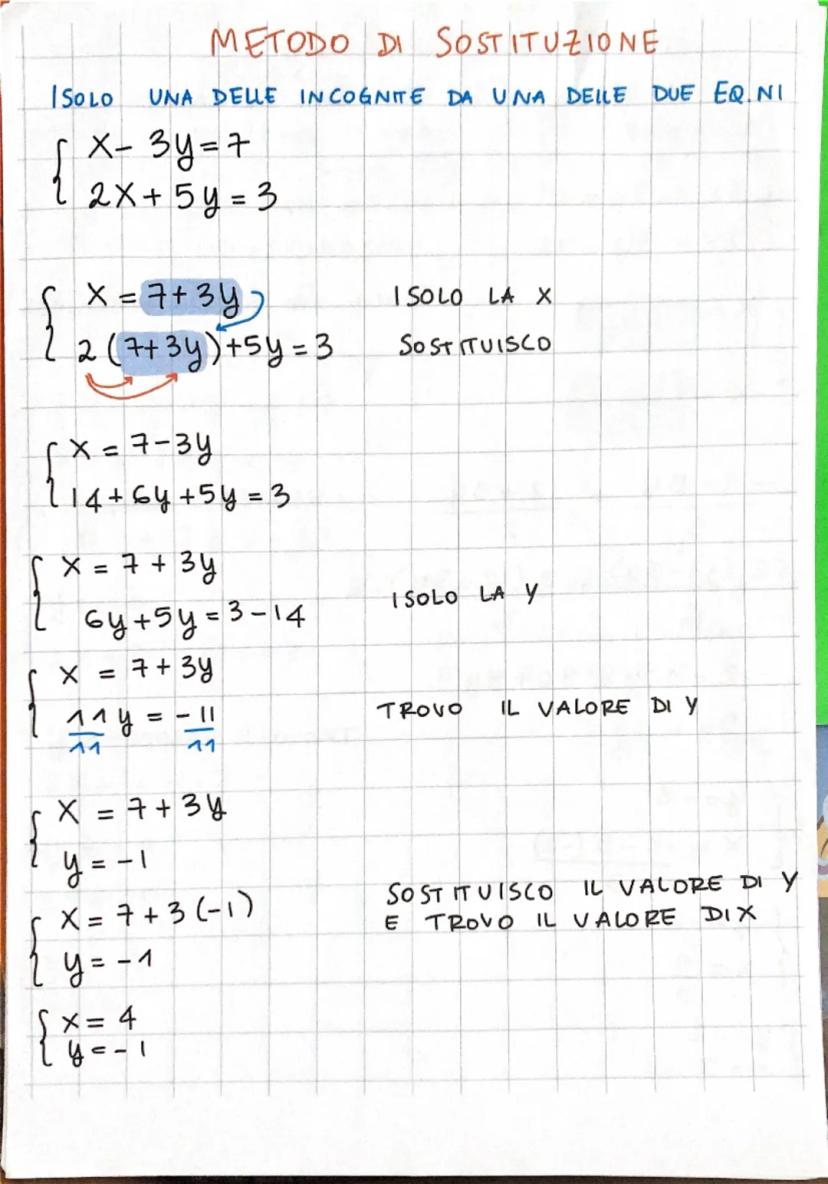 METODO DI SOSTITUZIONE
ISOLO UNA DELLE INCOGNITE DA UNA DELLE DUE EQ.NI
x - 3y = 7
2x + 5y = 3
x = 7 + 3y ISOLO LA X
2 (7 + 3y) + 5y = 3 SOSTITUISCO
x = 7 - 3y
14 + 6y + 5y = 3
x = 7 + 3y
6y + 5y = 3 - 14 ISOLO LA Y
x = 7 + 3y
11y = -11 TROVO IL VALORE DI Y
11 11
x = 7 + 3y
y = -1
x = 7 + 3 (-1) SOSTITUISCO IL VALORE DI Y
E TROVO IL VALORE DI X
y = -1
x = 4
y = -1